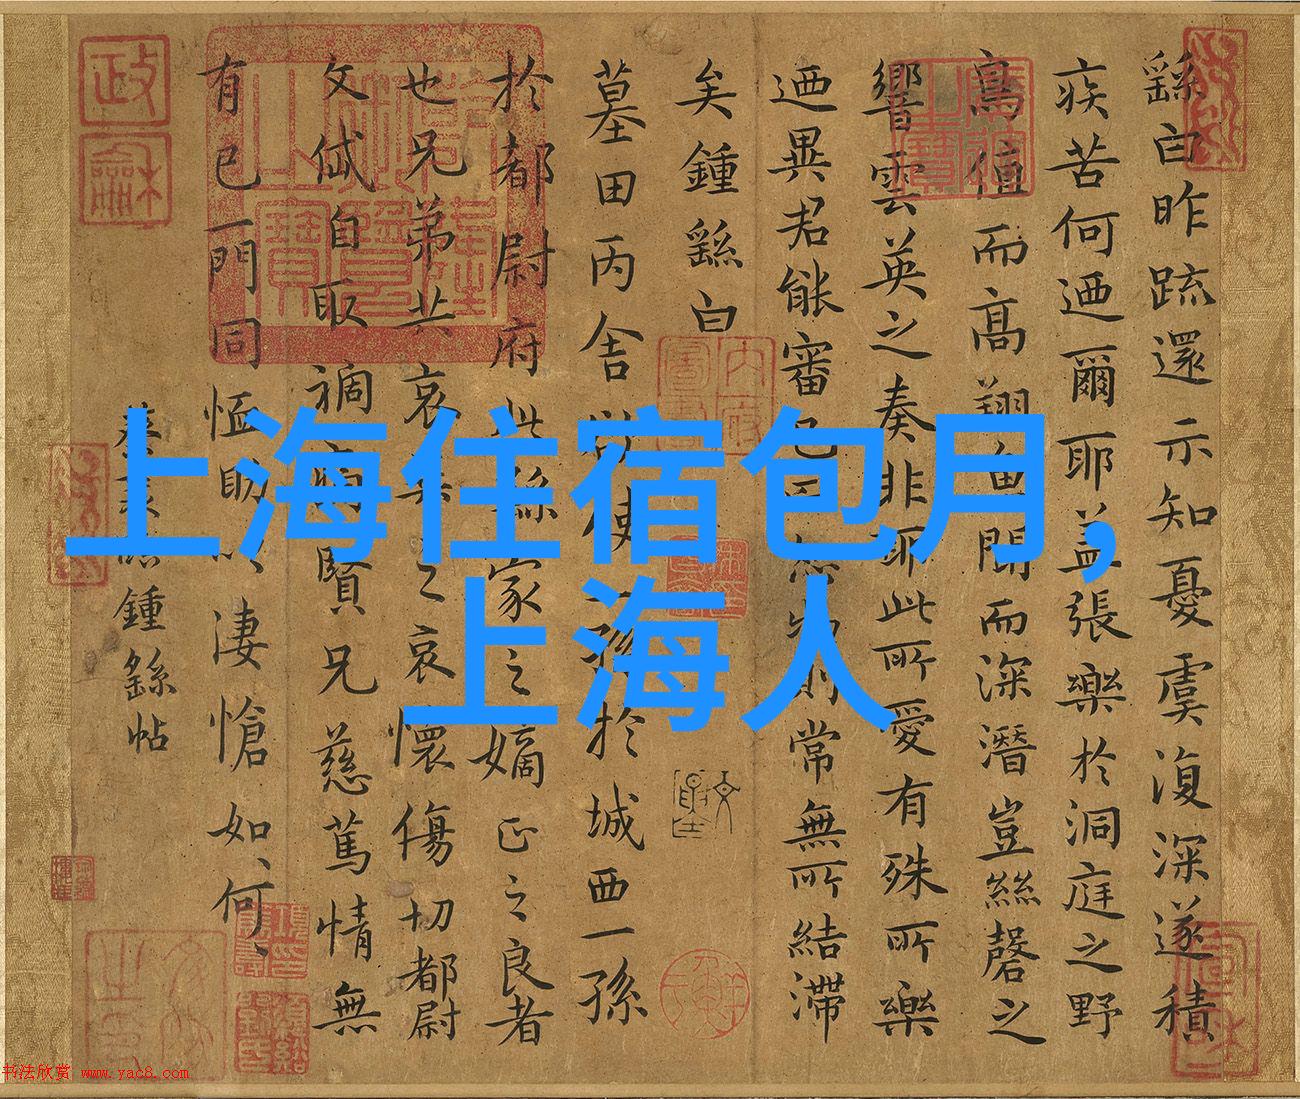 上海住宿包月,
上海人
繇白昨疏還示知憂虞復深遂積
疾苦何迺爾耶盖張樂於洞庭之野
鳥值而高翔魚聞而深潛豈絲磬之
響雲英之奏非耶此所愛有殊所樂
迺異君能審己則常無所結滯
矣鍾繇白
墓田丙舍使一孫於城西一孫
於都尉府此繇家之嫡正之良者
也兄弟共哀之哀懷傷切都尉
文岱自取禍賢兄慈篤情無
有已一門同恤助以凄愴如、何、
鍾繇帖
书法欣赏 www.yac8.com